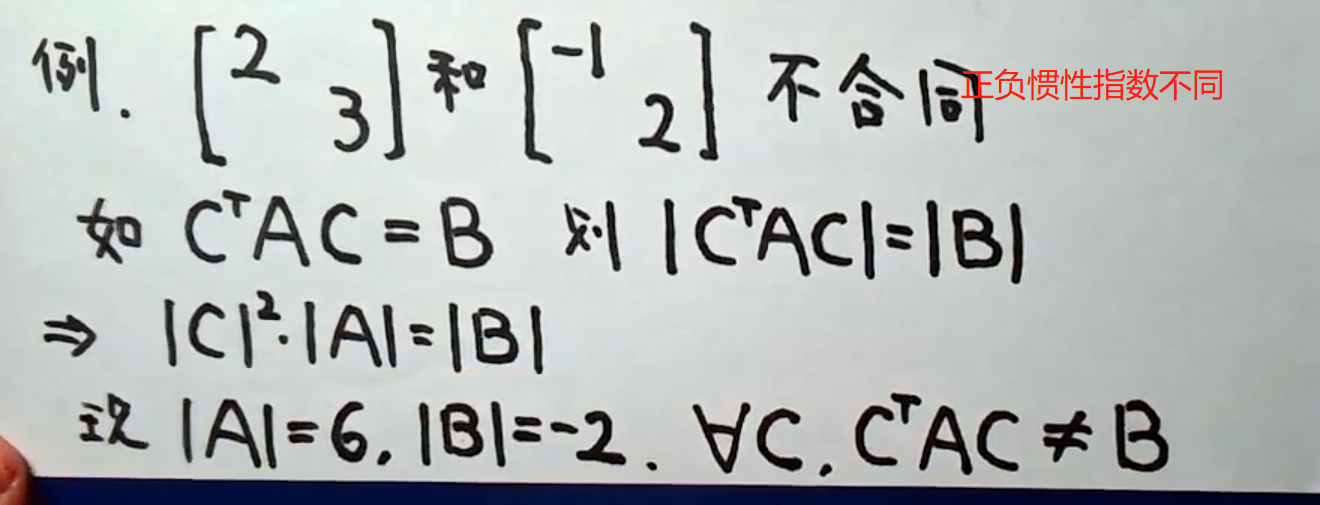 例. [2 3] 和 [-1 2] 不合同 正负惯性指数不同
如 CᵀAC = B 则 |CᵀAC|=|B|
⇒ |C|²·|A|=|B|
现 |A|=6, |B|=-2. ∀C, CᵀAC ≠ B